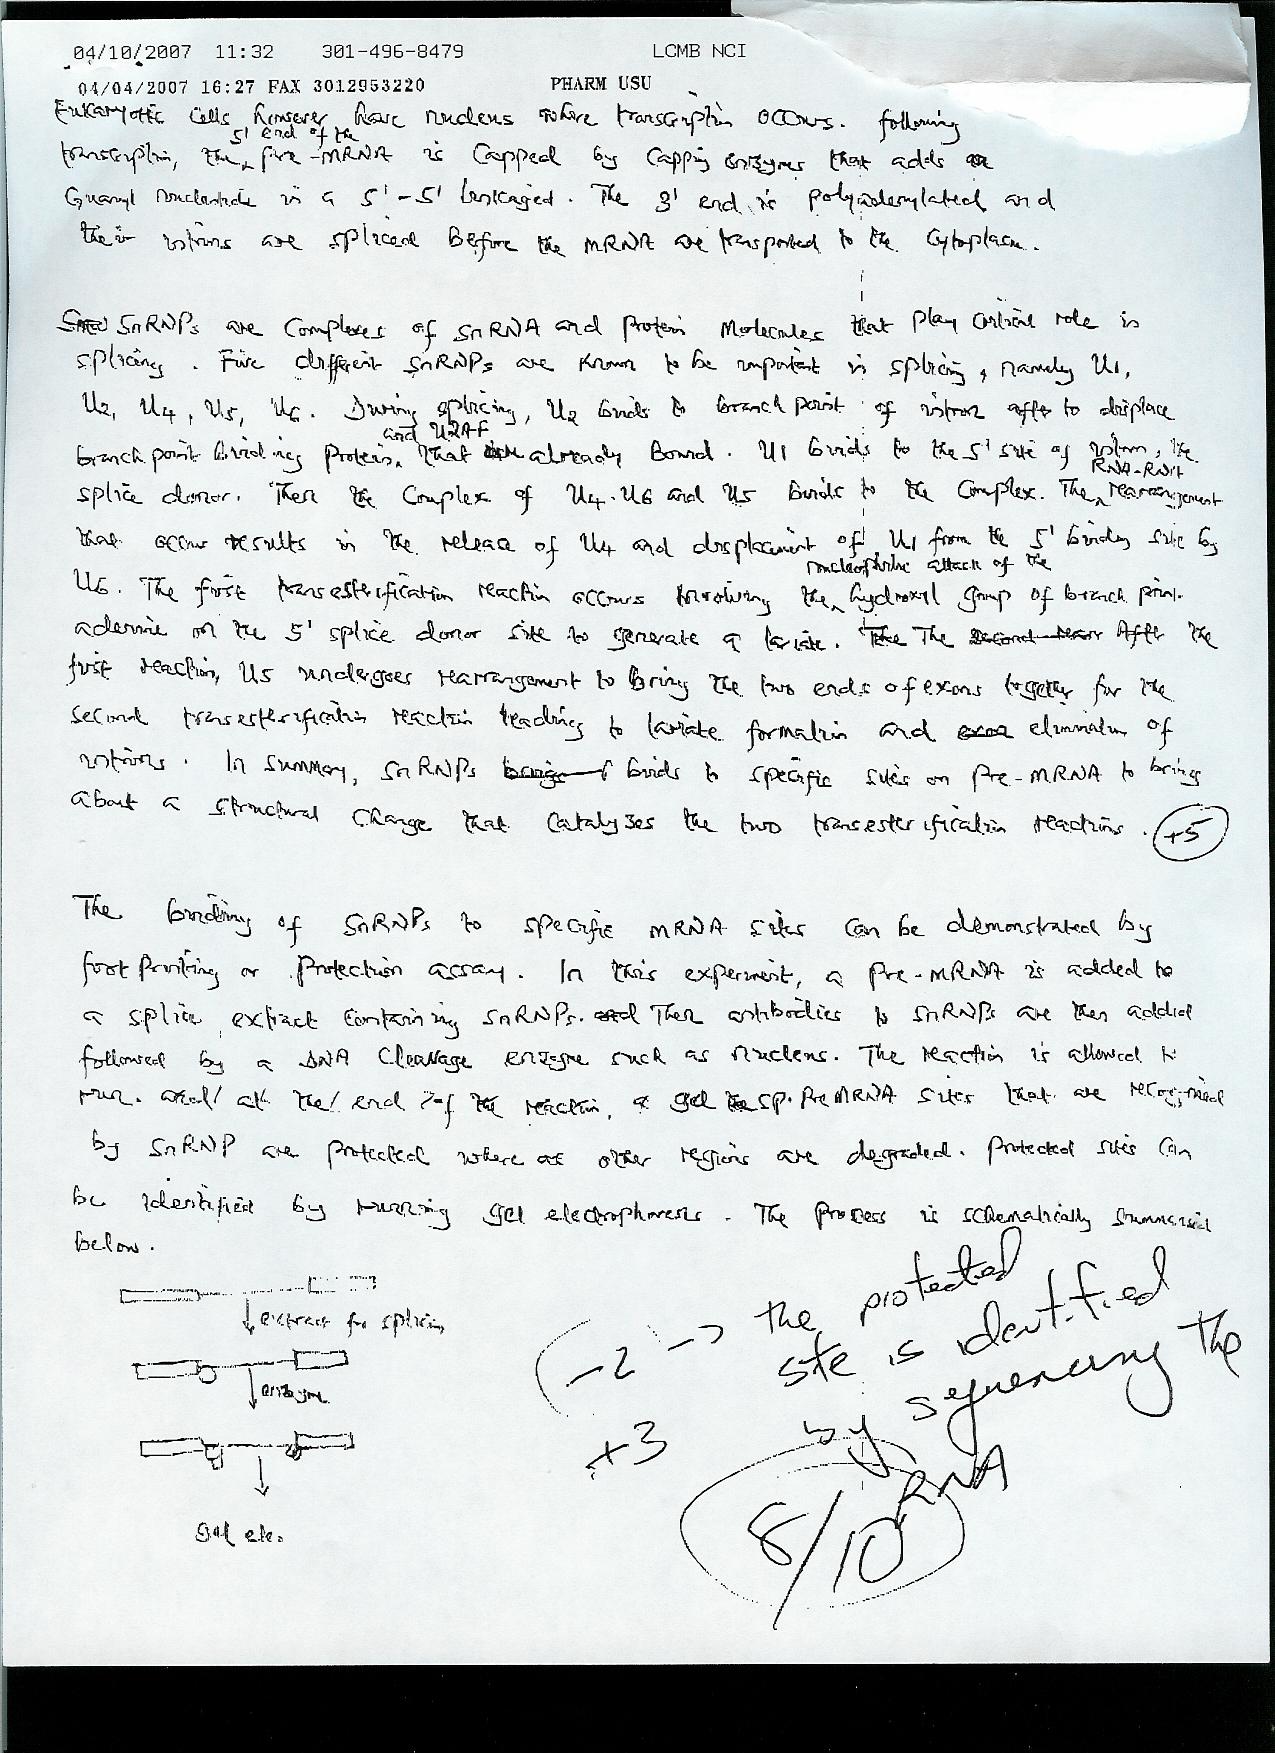 04/10/2007 11:32 301-496-8479 LCMB NCI
04/04/2007 16:27 FAX 3012953220 PHARM USU
Eukaryotic cells however have nucleus where transcription occurs. following
5' end of the
transcription, the pre-mRNA is capped by capping enzymes that adds
Guanyl nucleotide in a 5'-5' The 3' end is polyadenylated and
their introns are spliced before the mRNA are transported to the cytoplasm.
SnRNPs are complexes of snRNA and protein molecules that play critical role in
splicing. Five different SnRNPs are known to be important in splicing, namely U1,
U2, U4, U5, U6. During splicing, U2 binds to branch point of intron to displace
and U2AF
branch point binding protein, that already bound. U1 binds to the 5' site of intron, the
RNA-RNA
splice donor. Then the complex of U4.U6 and U5 binds to the complex. The rearrangement
that occur results in the release of U4 and displacement of U1 from the 5' binding site by
nucleophilic attack of the
U6. The first transesterification reaction occurs involving the hydroxyl group of branch point
adenine on the 5' splice donor site to generate a lariate. The After the
first reaction, U5 undergoes rearrangement to bring the two ends of exons together for the
second transesterification reaction leading to lariate formation and elimination of
introns. In summary, SnRNPs binds to specific sites on pre-mRNA to bring
about a structural change that catalyses the two transesterification reactions. +5
The binding of SnRNPs to specific mRNA sites can be demonstrated by
foot printing or protection assay. In this experiment, a pre-mRNA is added to
a splice extract containing SnRNPs. Then antibodies to SnRNPs are then added
followed by a DNA cleavage enzyme such as The reaction is allowed to
run. and at the end of the reaction, PremRNA sites that are recognised
by SnRNP are protected where as other regions are degraded. protected sites can
be identified by running gel electrophoresis. The process is schematically summarised
below.
extract for splicing
enzyme
gel ele.
-2 → the protected
site is identified
by sequencing the
RNA
+3
8/10